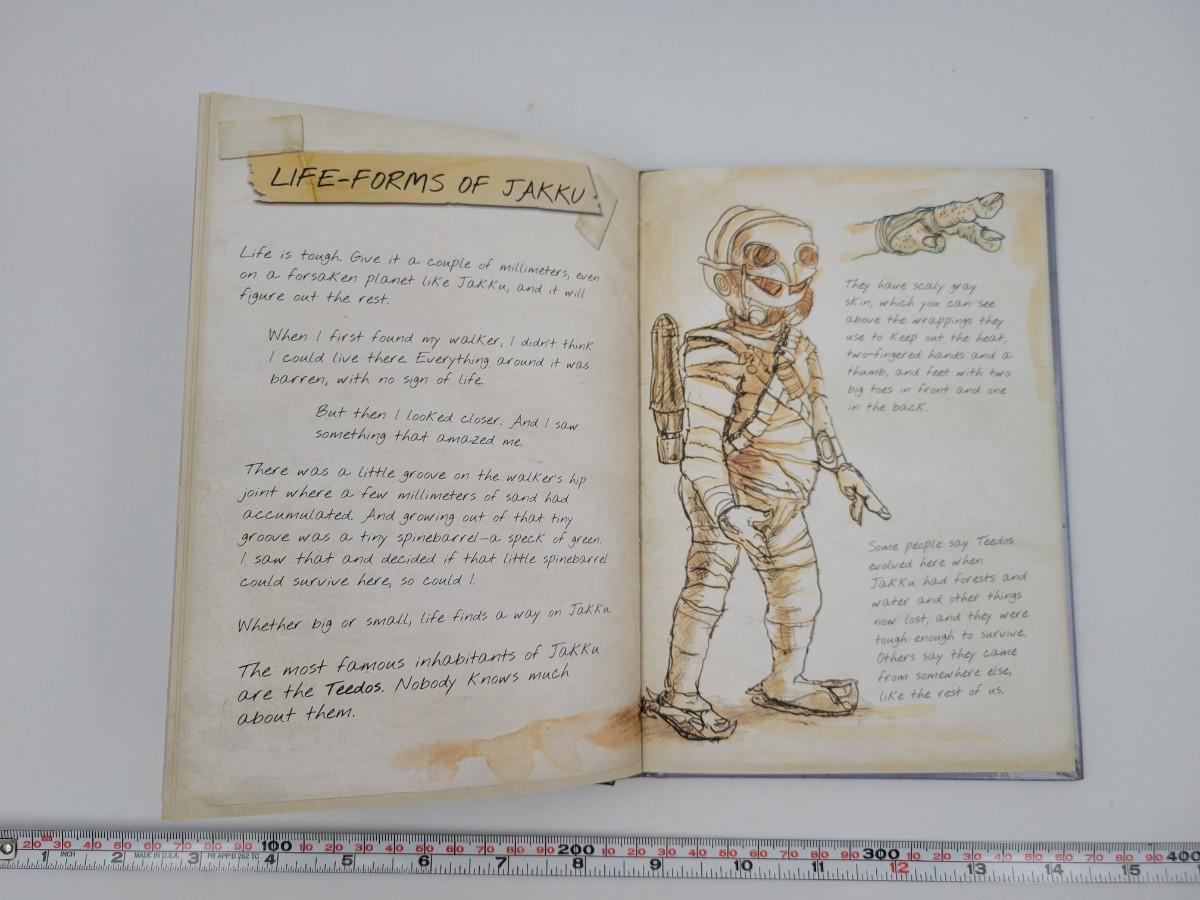 LIFE-FORMS OF JAKKU
Life is tough. Give it a couple of millimeters, even
on a forsaken planet like Jakku, and it will
figure out the rest.
When I first found my walker, I didn't think
I could live there. Everything around it was
barren, with no sign of life.
But then I looked closer. And I saw
something that amazed me.
There was a little groove on the walker's hip
joint where a few millimeters of sand had
accumulated. And growing out of that tiny
groove was a tiny spinebarrel—a speck of green.
I saw that and decided if that little spinebarrel
could survive here, so could I.
Whether big or small, life finds a way on Jakku.
The most famous inhabitants of Jakku
are the Teedos. Nobody knows much
about them.
They have scaly gray
skin, which you can see
above the wrappings they
use to keep out the heat,
two-fingered hands and a
thumb, and feet with two
big toes in front and one
in the back.
Some people say Teedos
evolved here when
Jakku had forests and
water and other things
now lost, and they were
tough enough to survive.
Others say they came
from somewhere else,
like the rest of us.
20 mm 30 40 50 60 70 80 90 100 10 20 30 40 50 60 70 80 90 200 10 20 30 40 50 60 70 80 90 300 10 20 30 40 50 60 70 80 90 400
1 INCH 2 MADE IN U.S.A. 3 4 5 6 7 8 9 10 11 12 13 14 15